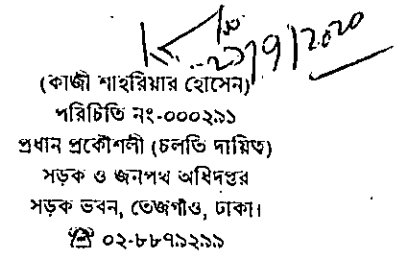 ২১/৭/২০২০
(কাজী শাহরিয়ার হোসেন)
পরিচিতি নং-০০০২৯১
প্রধান প্রকৌশলী (চলতি দায়িত্ব)
সড়ক ও জনপথ অধিদপ্তর
সড়ক ভবন, তেজগাঁও, ঢাকা।
☎ ০২-৮৮৭৯২৯৯